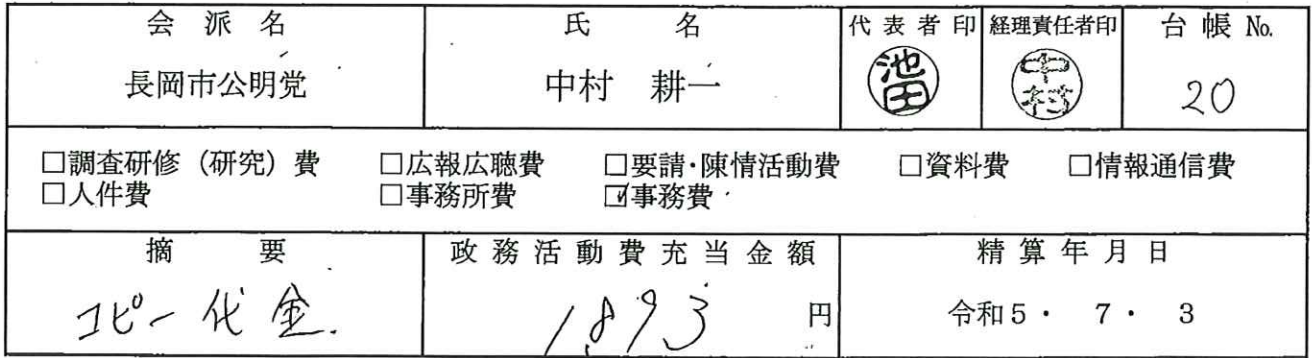 会派名 氏名 代表者印 経理責任者印 台帳 №
長岡市公明党 中村 耕一 池田 中村 20
□調査研修（研究）費 □広報広聴費 □要請・陳情活動費 □資料費 □情報通信費
□人件費 □事務所費 ☑事務費
摘要 政務活動費充当金額 精算年月日
コピー代金. 1,893 円 令和5・ 7・ 3